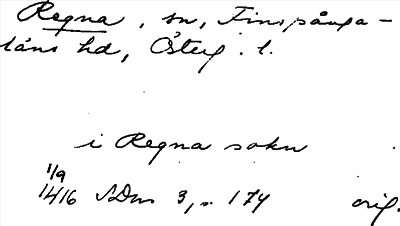 Regna, sn, Finspånga-
läns hd, Österg. l.
i Regna sokn
1/9
1416 SDns 3, s. 174 orig.